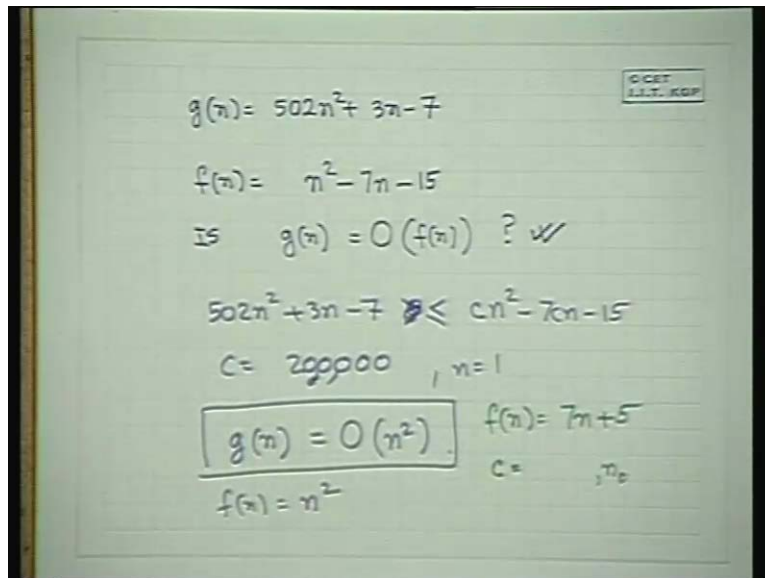 © CET
I.I.T. KGP
g(n) = 502n² + 3n - 7
f(n) = n² - 7n - 15
IS g(n) = O(f(n)) ?
502n² + 3n - 7 ≤ cn² - 7cn - 15
C = 200,000 , n = 1
g(n) = O(n²).
f(n) = 7n + 5
C = , n₀
f(n) = n²